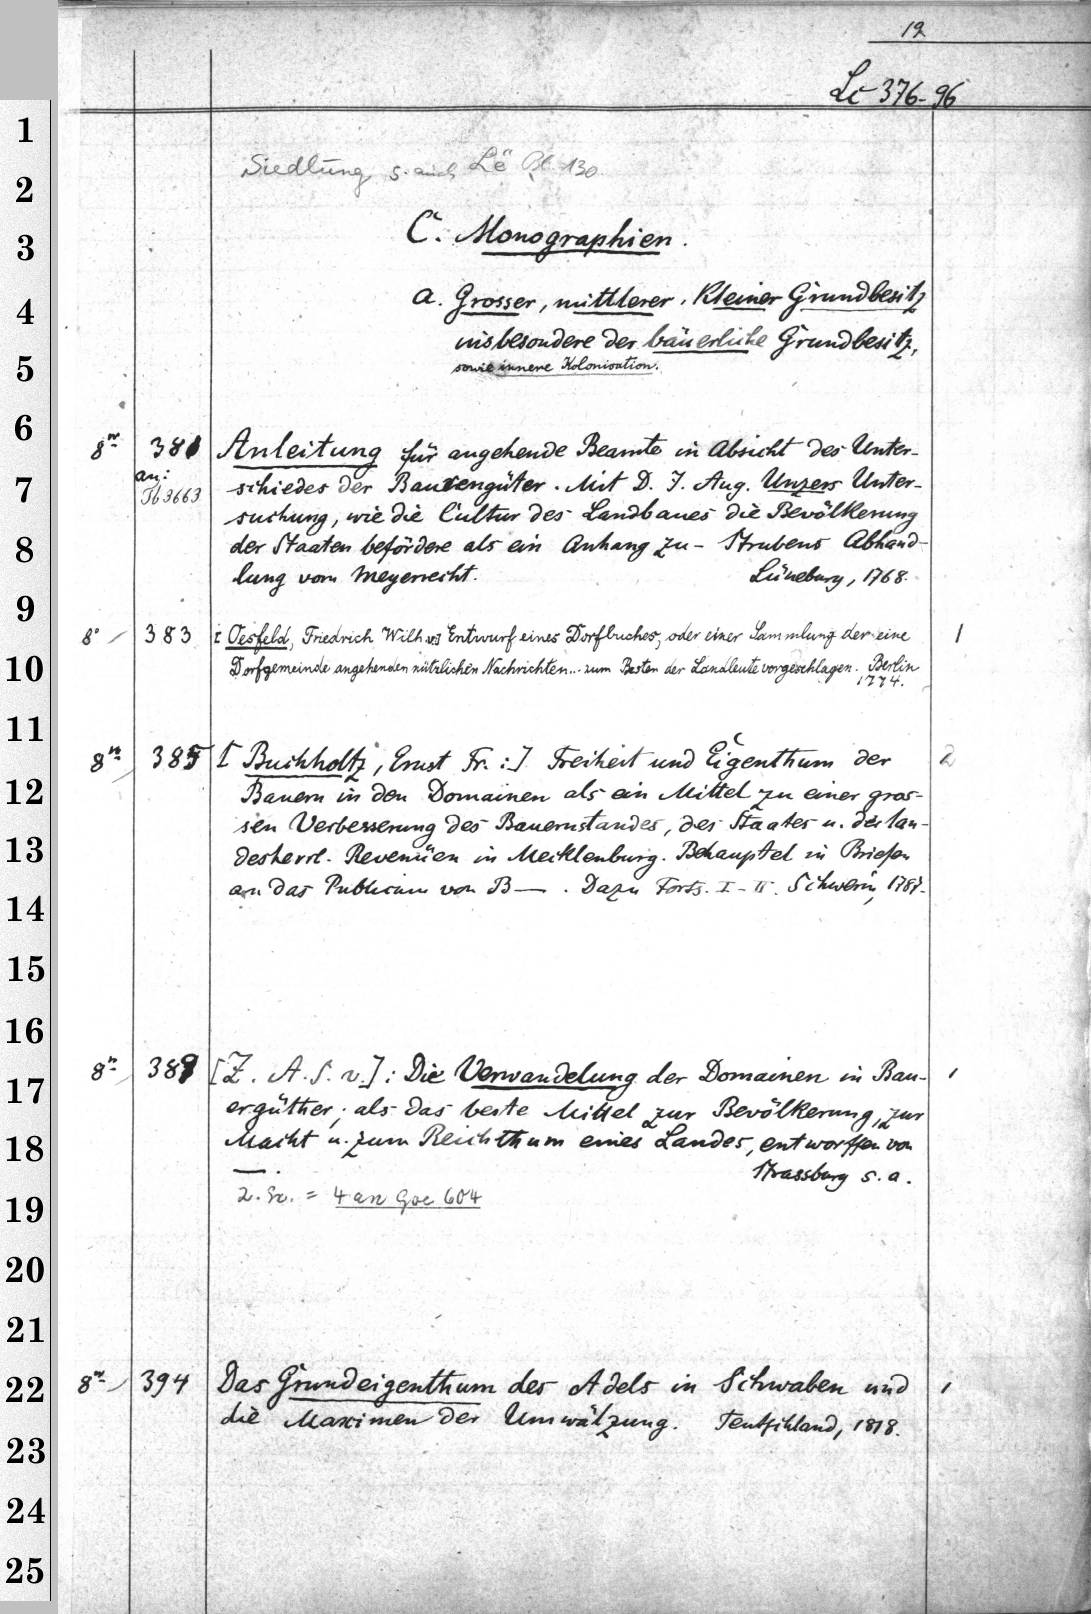 19
Lc 376-96
1
2
3
4
5
6
7
8
9
10
11
12
13
14
15
16
17
18
19
20
21
22
23
24
25
Siedlung s. auch Lë Bl. 130
C. Monographien.
a. Grosser, mittlerer, Kleiner Grundbesitz
insbesondere der bäuerliche Grundbesitz,
sowie innere Kolonisation.
8° 381 Anleitung für angehende Beamte in Absicht des Unter-
an: schiedes der Bauerngüter. Mit D. J. Aug. Unzers Unter-
3663
suchung, wie die Cultur des Landbaues die Bevölkerung
der Staaten befördere als ein Anhang zu - Strubens Abhand-
lung vom Meyerrecht. Lüneburg, 1768.
8° 383 [Oesfeld, Friedrich Wilh. v:] Entwurf eines Dorfbuches, oder einer Sammlung der eine 1
Dorfgemeinde angehenden nützlichen Nachrichten... zum Besten der Landleute vorgeschlagen. Berlin
1774.
8° 385 [Buchholtz, Ernst Fr.:] Freiheit und Eigenthum der 2
Bauern in den Domainen als ein Mittel zu einer gros-
sen Verbesserung des Bauernstandes, des Staates u. der lan-
desherrl. Revenüen in Mecklenburg. Behauptet in Briefen
an das Publicum von B—. Dazu Forts. I-II. Schwerin, 178
8° 389 [Z. A. S. v.]: Die Verwandelung der Domainen in Bau- 1
ergüther, als das beste Mittel zur Bevölkerung, zur
Macht u. zum Reichthum eines Landes, entworffen von
—. Strassburg s. a.
2. Ex. = 4 an Goe 604
8° 394 Das Grundeigenthum des Adels in Schwaben und 1
die Maximen der Umwälzung. Teutschland, 1818.